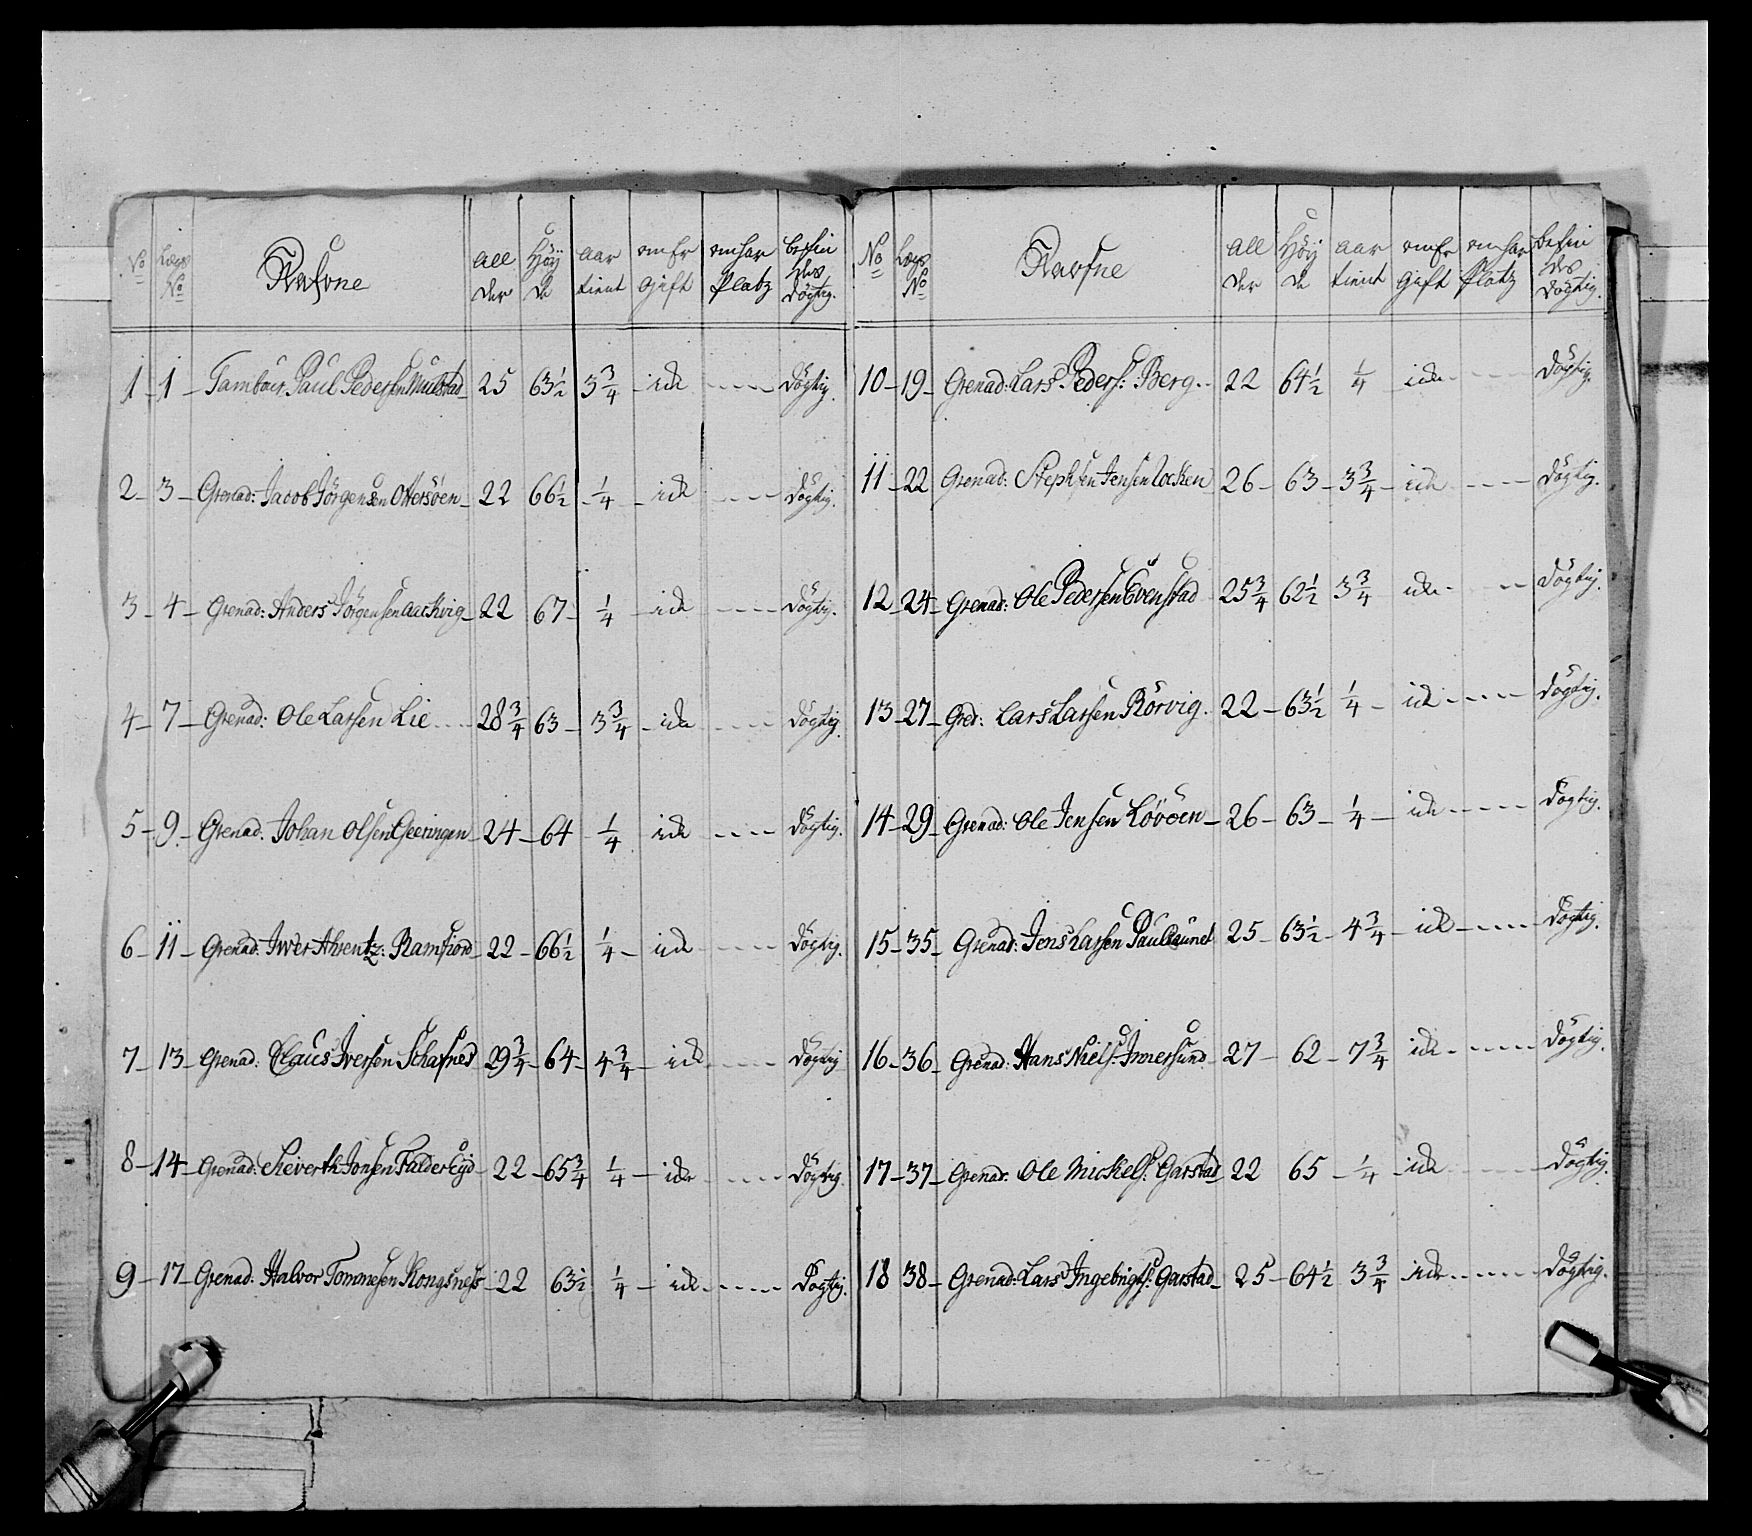 No Lægs No Nafne Allder Høyde aar tient om Er Gift om har Platz befindes døgtig.
1 - 1 - Tambour Paul Pedersen Mulstad - 25 63½ 3¾ - ide - - - - døgtig.
2 - 3 - Grenad: Jacob Jørgensen Ottersøen - 22 66½ - ¼ - ide - - - - døgtig.
3 - 4 - Grenad: Anders Jørgensen - 22 67 - ¼ - ide - - - - døgtig.
4 - 7 - Grenad: Ole Larsen Lie - - - 28¾ 63 - 3¾ - ide - - - - døgtig
5 - 9 - Grenad. Johan Olsen Geeringen - 24 - 64 - ¼ ide - - - - døgtig.
6 - 11 - Grenad. Iver Ahrentz: Ramfiord - 22 - 66½ ¼ - ide - - - - døgtig.
7 - 13 - Grenad: Claus Iversen Schafned 29¾ - 64 - 4¾ - ide - - - - døgtig
8 - 14 - Grenad: Sieverth Jonsen Falder Eyd - 22 - 65¾ ¼ - ide - - - - døgtig.
9 - 17 - Grenad. Halvor Tommesen Kongsness - 22 63½ ¼ - ide - - - - døgtig.
No Lægs No Nafne Allder Høyde aar tient om Er Gift om har Platz befindes døgtig.
10 - 19 - Grenad: Lars Peders: Berg. - 22 64½ ¼ - ide - - - - døgtig.
11 - 22 Grenad: Stephen Jensen Locken 26 - 63 - 3¾ - ide - - - - døgtig.
12 - 24 - Grenad: Ole Pedersen Evenstad 25¾ 62½ 3¾ ide - - - døgtig.
13 - 27 - Gred: Lars Larsen Rörvig. 22 - 63½ ¼ - ide - - - - døgtig.
14 - 29 - Grenad: Ole Jensen Lövöen - 26 - 63 - ¼ - ide - - - - døgtig.
15 - 35 - Grenad: Jens Larsen Paulsaunet 25 - 63½ - 4¾ - ide - - - - døgtig.
16 - 36 - Grenad: Hans Niels: Imersund 27 - 62 - 7¾ ide - - - - døgtig.
17 - 37 - Grenad: Ole Mickels: Garstad 22 65 - ¼ - ide - - - - døgtig.
18 38 - Grenad: Lars Ingebrigts: Garstad - 25 - 64½ 3¾ - ide - - - - døgtig.